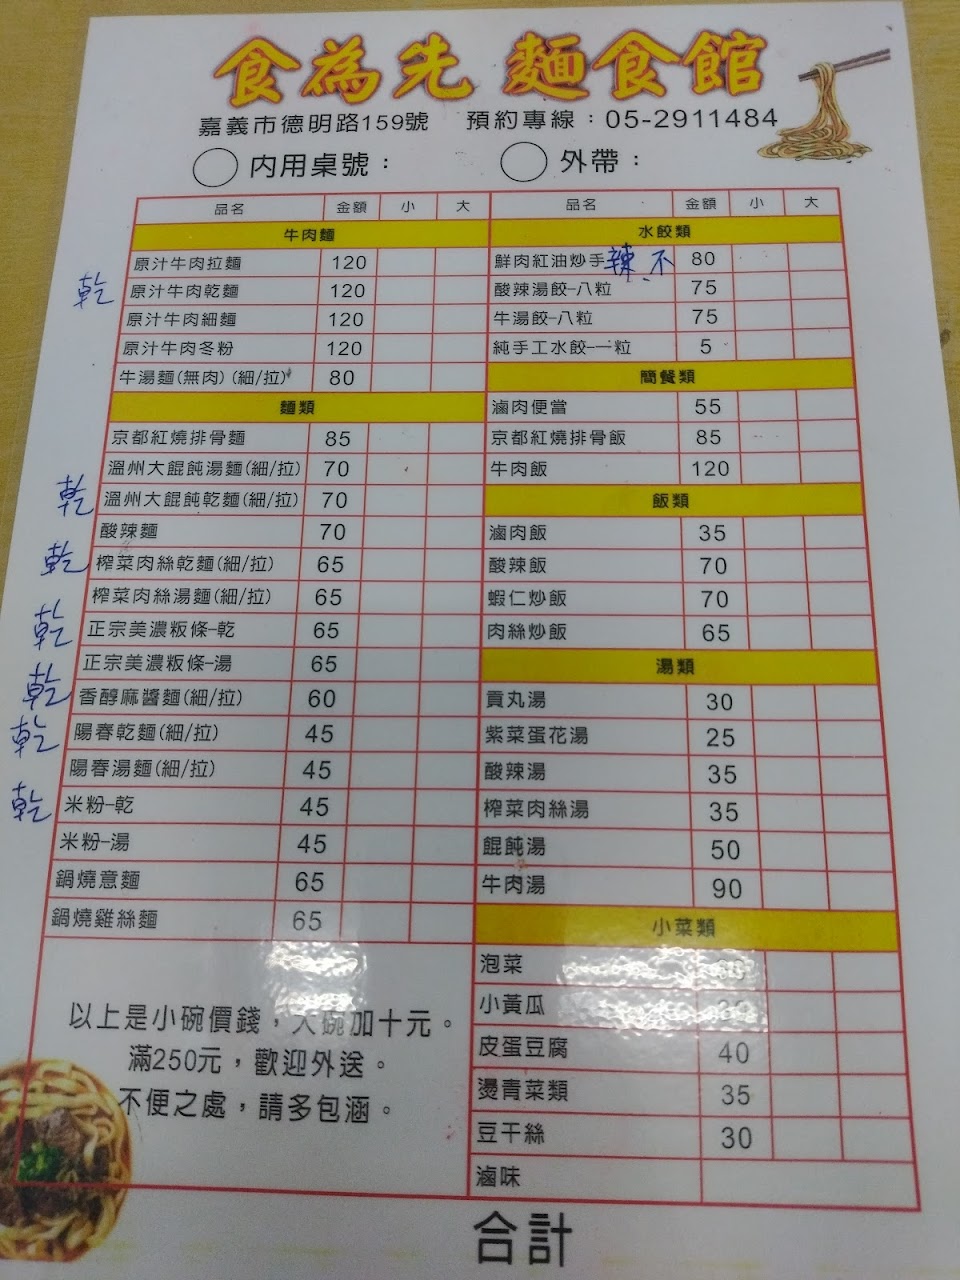 食為先 麵食館
嘉義市德明路159號 預約專線：05-2911484
內用桌號： 外帶：
品名 金額 小 大
牛肉麵
原汁牛肉拉麵 120
乾 原汁牛肉乾麵 120
原汁牛肉細麵 120
原汁牛肉冬粉 120
牛湯麵(無肉)(細/拉) 80
麵類
京都紅燒排骨麵 85
溫州大餛飩湯麵(細/拉) 70
乾 溫州大餛飩乾麵(細/拉) 70
酸辣麵 70
乾 榨菜肉絲乾麵(細/拉) 65
榨菜肉絲湯麵(細/拉) 65
乾 正宗美濃粄條-乾 65
正宗美濃粄條-湯 65
乾 香醇麻醬麵(細/拉) 60
乾 陽春乾麵(細/拉) 45
陽春湯麵(細/拉) 45
乾 米粉-乾 45
米粉-湯 45
鍋燒意麵 65
鍋燒雞絲麵 65
以上是小碗價錢，大碗加十元。
滿250元，歡迎外送。
不便之處，請多包涵。
品名 金額 小 大
水餃類
鮮肉紅油炒手 辣、不 80
酸辣湯餃-八粒 75
牛湯餃-八粒 75
純手工水餃-一粒 5
簡餐類
滷肉便當 55
京都紅燒排骨飯 85
牛肉飯 120
飯類
滷肉飯 35
酸辣飯 70
蝦仁炒飯 70
肉絲炒飯 65
湯類
貢丸湯 30
紫菜蛋花湯 25
酸辣湯 35
榨菜肉絲湯 35
餛飩湯 50
牛肉湯 90
小菜類
泡菜
小黃瓜
皮蛋豆腐 40
燙青菜類 35
豆干絲 30
滷味
合計